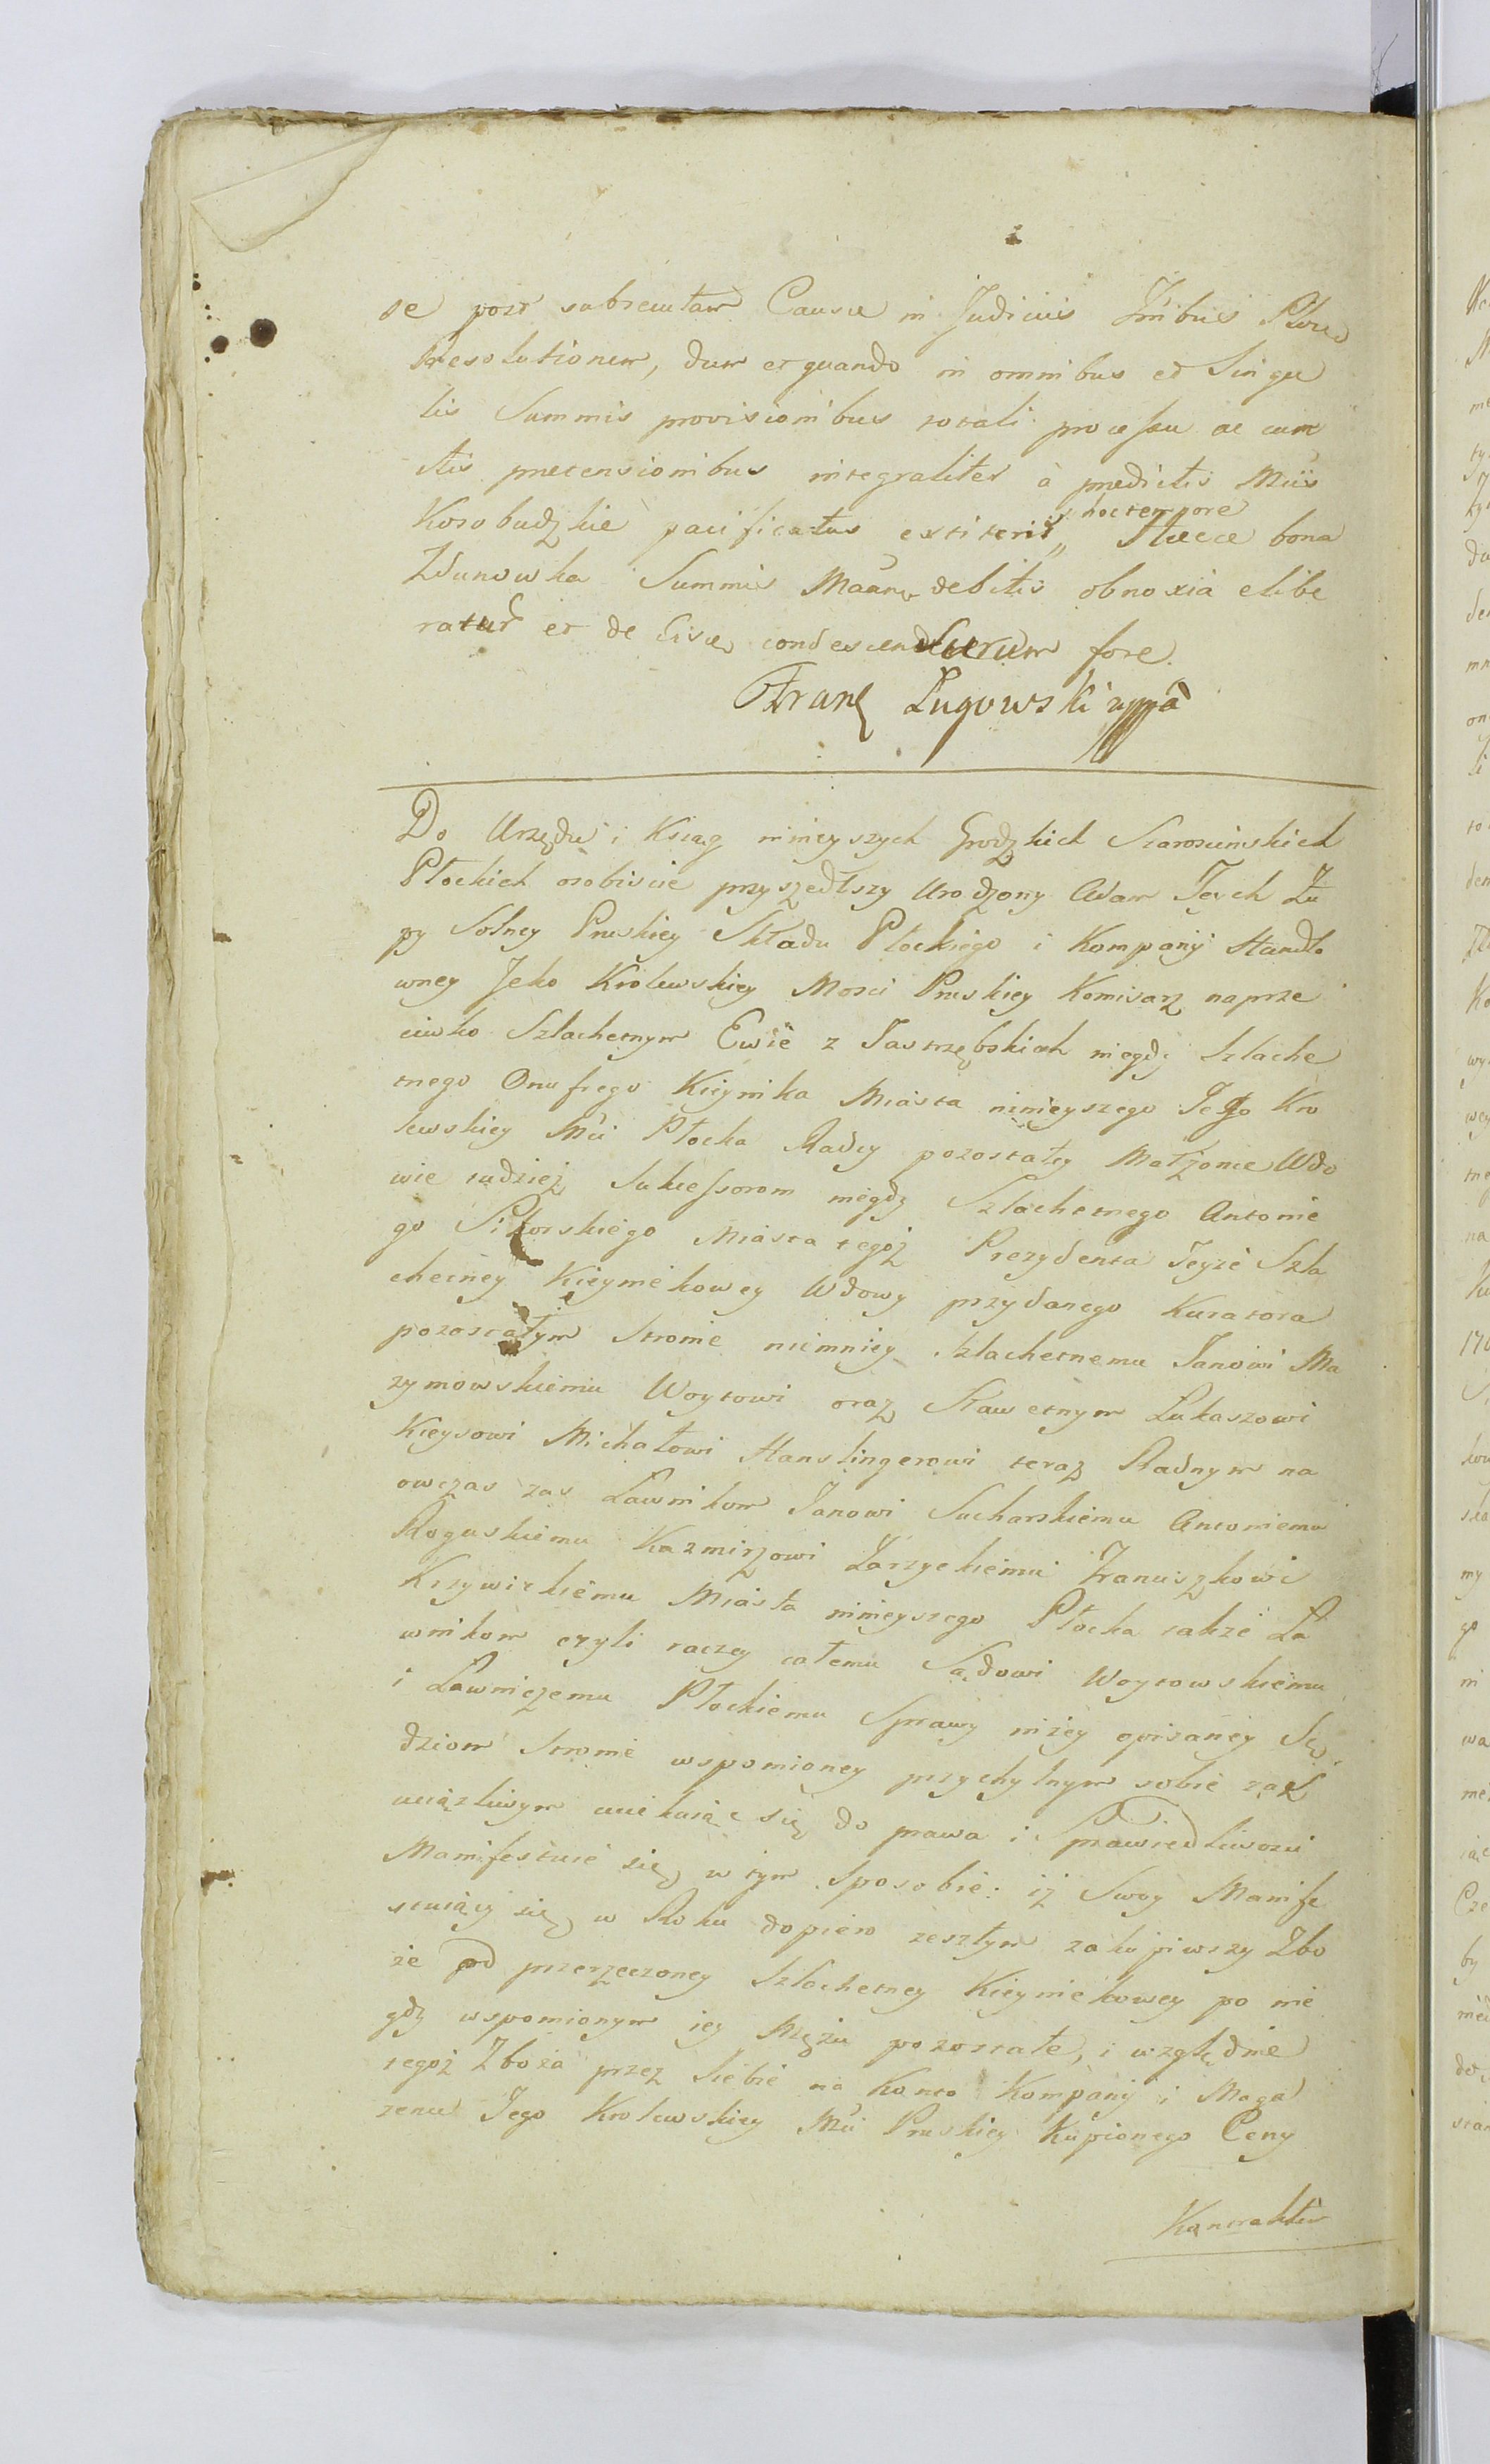 se post subsecutam Causæ in Judiciis Tribus
Resolutionem, dum et quando in omnibus et Singu
lis Summis provisionibus totali processu ac cunc
tis prætensionibus integraliter à prædictis Mciis
Kosobudzkie pacificatus extiterit, hoc tempore
Hæcce bona
Zdunowka Summis debitis obnoxia elibe
ratur et de Eisce condescendturum fore.
Franc Ługowski mppa
Do Urzędu i Ksiąg ninieyszych Grodzkich Starościnskich
Płockich osobiscie przyszedłszy Urodzony Adam Zu
py Solney Pruskiey Składu Płockiego i Kompanÿ Handlo
wney Jeho Krolewskiey Mosci Pruskiey Komisarz naprze
ciwko Szlachetnym Ewie z Jastrzębskich niegdy Szlache
tnego Onufrego Kieynika Miasta ninieyszego Jego Kro
lewskiey Mci Płocka Radcy pozostałey Małżonce Wdo
wie tudzież Sukcessorom niegdy Szlachetnego Antonie
go Sikorskiego Miasta tegoż Prezydenta Teyże Szla
chetney Kieynikowey Wdowy przydanego Kuratora
pozostałym Stronie niemniey Szlachetnemu Janowi Ma
zymowskiemu Woytowi oraz Sławetnym Łukaszowi
Kieysowi Michałowi Hanslingerowi teraz Radnym na
owczas zas Ławnikom Janowi Sucharskiemu Antoniemu
Roguskiemu Kazmirzowi Zarzyckiemu Franuszkowi
Krzywickiemu Miasta ninieyszego Płocka takze Ła
wnikom czyli raczey całemu Sądowi Woytowskiemu
i Ławniczemu Płockiemu Sprawy niżey opisaney Sę
dziom Stronie wspomioney przychylnym sobie zaś
uciążliwym uciekaiąc się do prawa i Sprawiedliwosci
Manifestuie się w tym sposobie: iż Swoy Manife
stuiący się w Roku dopiero zeszłym zakupiwszy Zbo
że od przerzeczoney Szlachetney Kieynikowey po nie
gdy wspomionym iey Mężu pozostałe, i względnie
tegoż Zboża przez Siebie na Konto Kompanÿ i Maga
zenu Jego Krolewskiey Mci Pruskiey Kupionego Ceny
Kontraktu